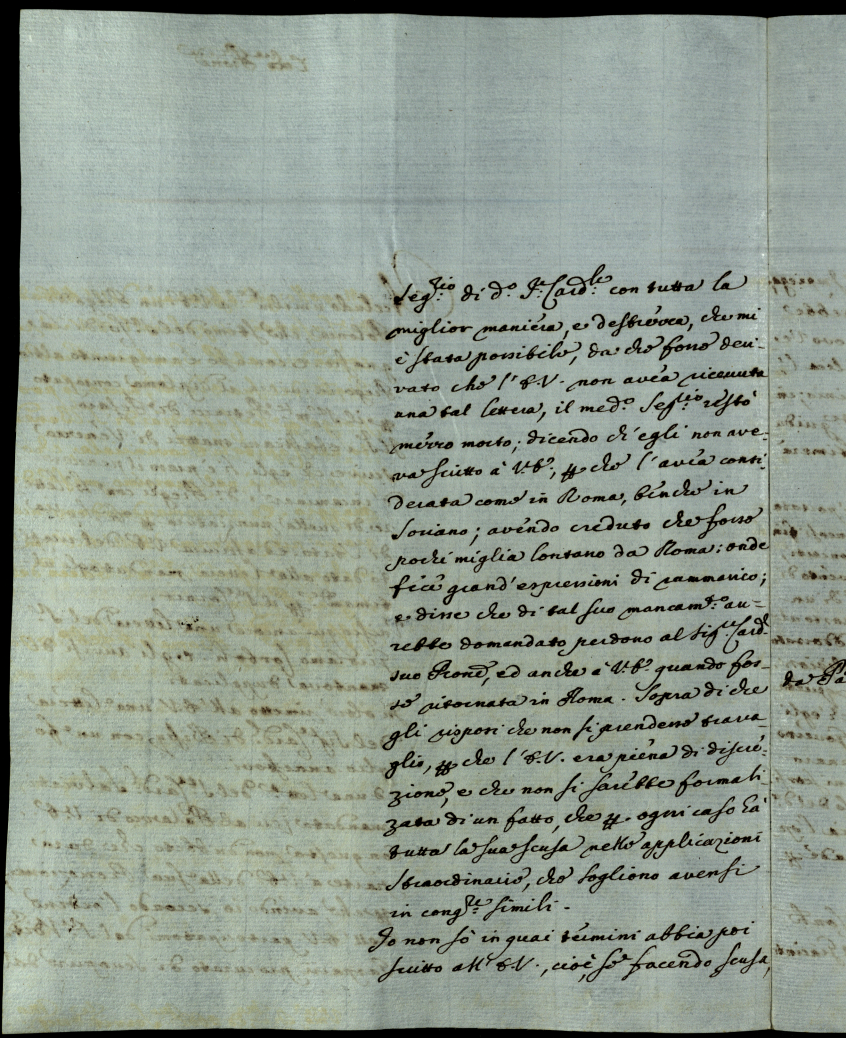 Seg.rio di d.o S.r Card.le con tutta la
miglior maniera, e destrezza, che mi
è stata possibile, da che fosse deri-
vato che l'E.V. non avea ricevuta
una tal lettera, il med.o Seg.rio restò
mezzo morto; dicendo ch'egli non ave-
va scritto à V.E., che l'avea consi-
derata come in Roma, benche in
Soriano; avendo creduto che fosse
pochi miglia lontano da Roma: onde
fece grand'espressioni di rammarico;
e disse che di tal suo mancam.to au-
rebbe domandato perdono al Sig.r Card.
suo Prone, ed anche à V.E. quando fos-
se ritornata in Roma. Sopra di che
gli risposi che non si prendesse trava-
glio, che l'E.V. era piena di discre-
zione, e che non si sarebbe formali-
zata di un fatto, che ogni caso hà
tutta la sua scusa nelle applicazioni
straordinarie, che sogliono aversi
in cong.re simili.
Io non sò in quai termini abbia poi
scritto all'E.V., cioè, se facendo scusa,